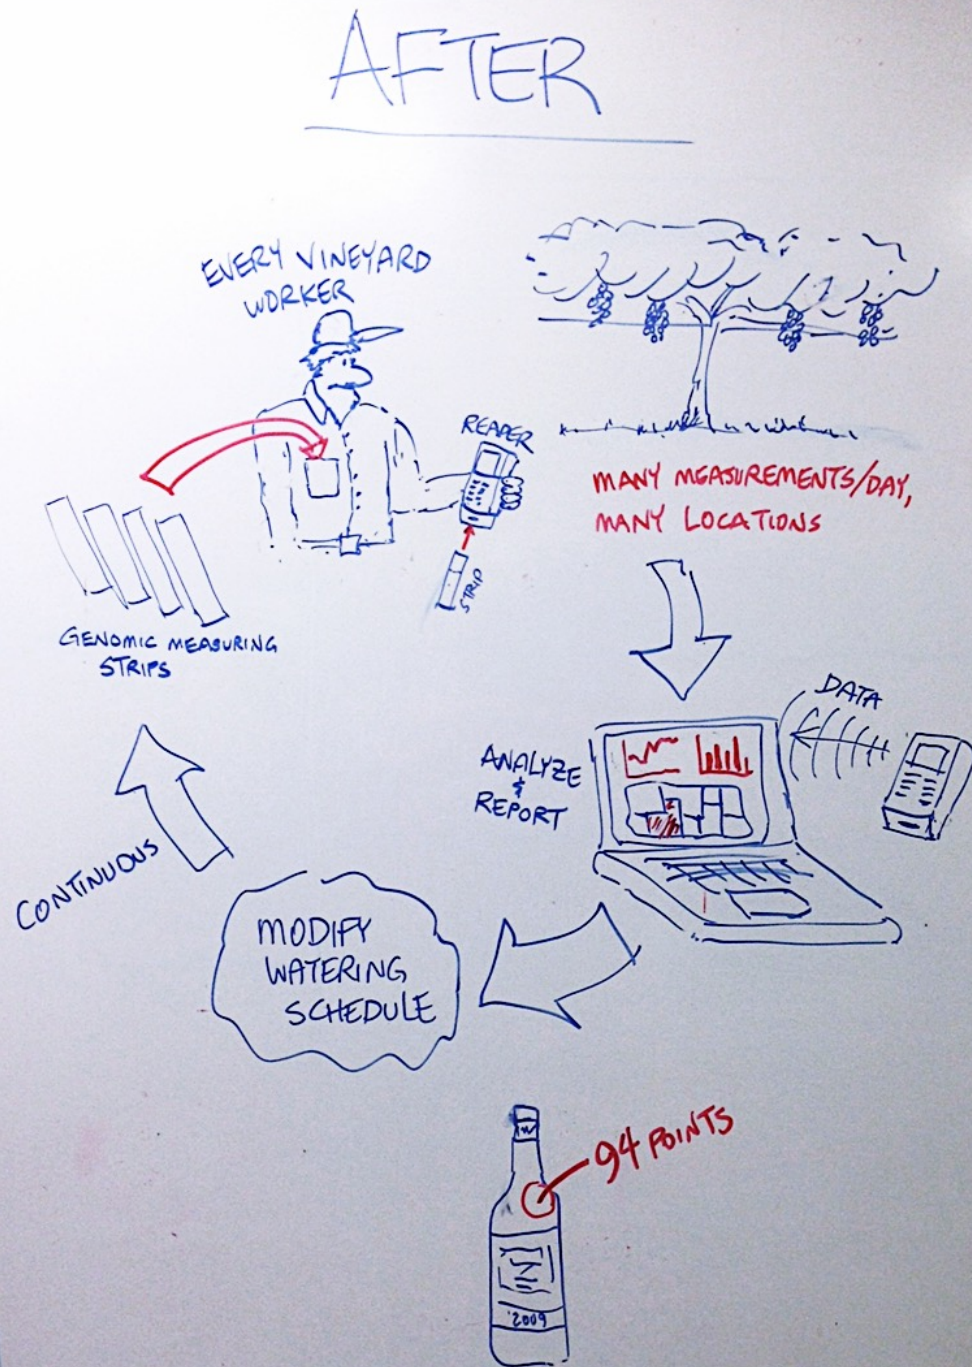 AFTER
EVERY VINEYARD
WORKER
READER
STRIP
GENOMIC MEASURING
STRIPS
MANY MEASUREMENTS/DAY,
MANY LOCATIONS
DATA
ANALYZE
&
REPORT
MODIFY
WATERING
SCHEDULE
CONTINUOUS
94 POINTS
2009